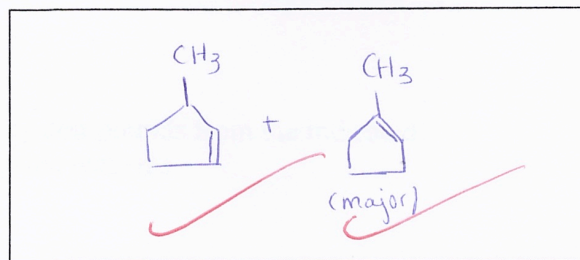 CH3
+
CH3
(major)